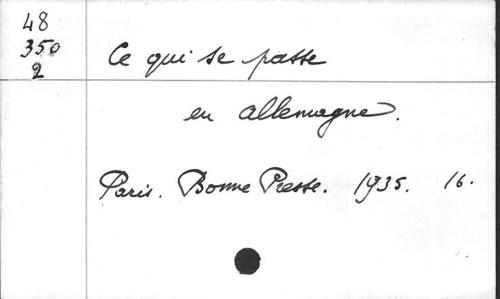 48
350
2
Ce qui se passe
en allemagne.
Paris. Bonne Presse. 1935. 16.